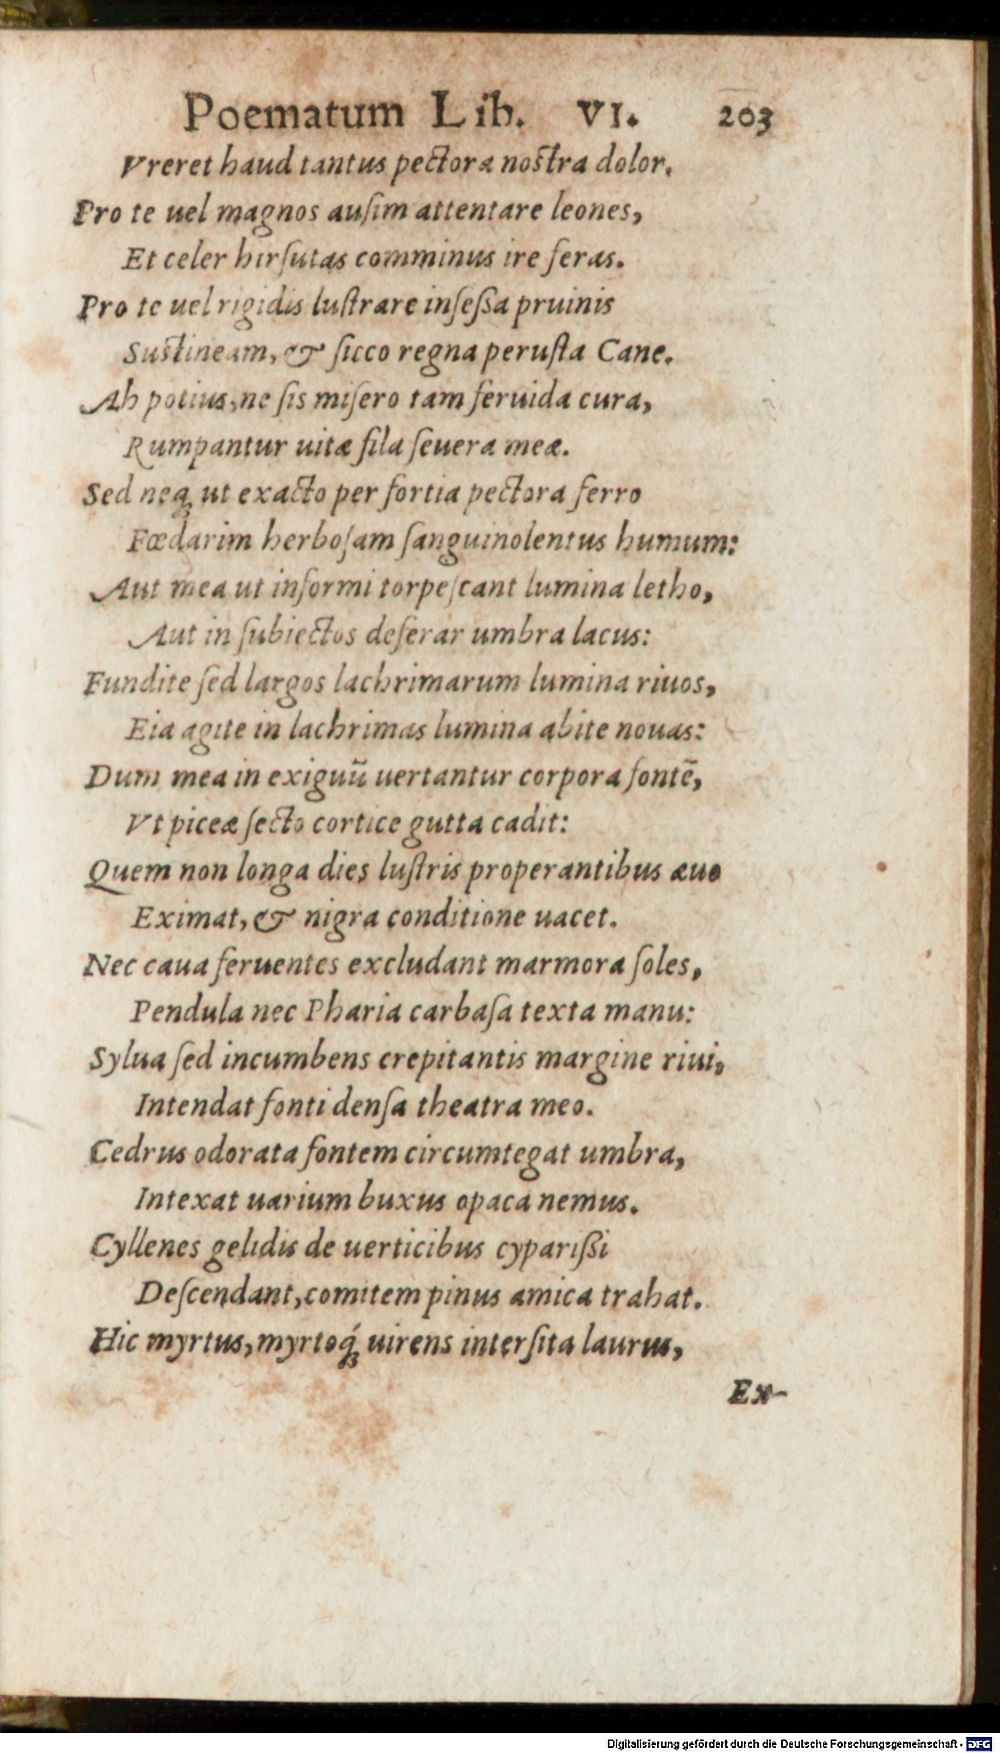 Poematum Lib. VI. 203
Vreret haud tantus pectora nostra dolor.
Pro te uel magnos auſim attentare leones,
Et celer hirſutas comminus ire feras.
Pro te uel rigidis luſtrare inſeſſa pruinis
Sustineam, & ſicco regna peruſta Cane.
Ah potius, ne ſis miſero tam feruida cura,
Rumpantur uitæ fila ſeuera meæ.
Sed neq; ut exacto per fortia pectora ferro
Fœdarim herboſam ſanguinolentus humum:
Aut mea ut informi torpeſcant lumina letho,
Aut in ſubiectos deferar umbra lacus:
Fundite ſed largos lachrimarum lumina riuos,
Eia agite in lachrimas lumina abite nouas:
Dum mea in exiguū uertantur corpora fontē,
Vt piceæ ſecto cortice gutta cadit:
Quem non longa dies luſtris properantibus æuo
Eximat, & nigra conditione uacet.
Nec caua feruentes excludant marmora ſoles,
Pendula nec Pharia carbaſa texta manu:
Sylua ſed incumbens crepitantis margine riui,
Intendat fonti denſa theatra meo.
Cedrus odorata fontem circumtegat umbra,
Intexat uarium buxus opaca nemus.
Cyllenes gelidis de uerticibus cyparißi
Deſcendant, comitem pinus amica trahat.
Hic myrtus, myrtoq́; uirens interſita laurus,
Ex-
Digitalisierung gefördert durch die Deutsche Forschungsgemeinschaft - DFG